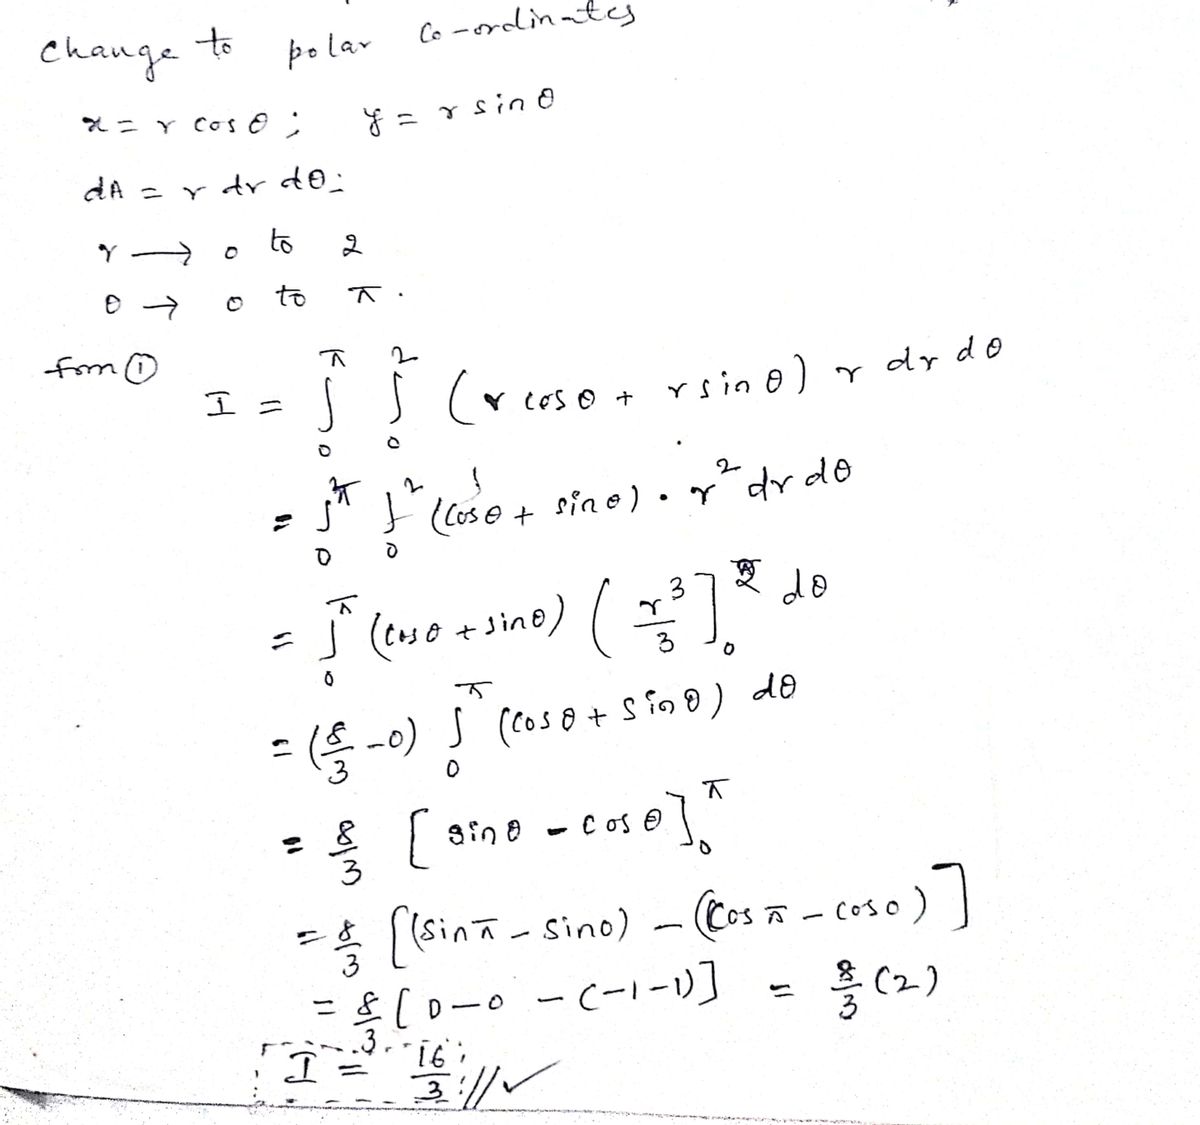 Change to polar Co-ordinates
x = r cos θ ; y = r sin θ
dA = r dr dθ ;
r → 0 to 2
θ → 0 to π .
from ① I = ∫₀^π ∫₀² (r cos θ + r sin θ) r dr dθ
= ∫₀^π ∫₀² (cos θ + sin θ) . r² dr dθ
= ∫₀^π (cos θ + sin θ) ( r³/3 ]₀² dθ
= (8/3 - 0) ∫₀^π (cos θ + sin θ) dθ
= 8/3 [ sin θ - cos θ ]₀^π
= 8/3 [(sin π - sin 0) - (cos π - cos 0)]
= 8/3 [ 0 - 0 - (-1-1)] = 8/3 (2)
I = 16/3 // ✓